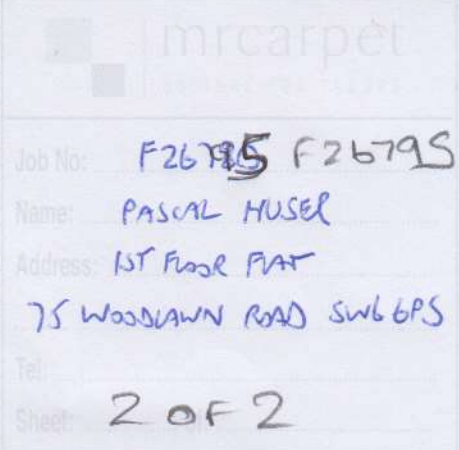 mrcarpet
Job No: F26795 F26795
Name: PASCAL HUSER
Address: 1ST FLOOR FLAT
75 WOODLAWN ROAD SW6 6PS
Tel:
Sheet: 2 OF 2